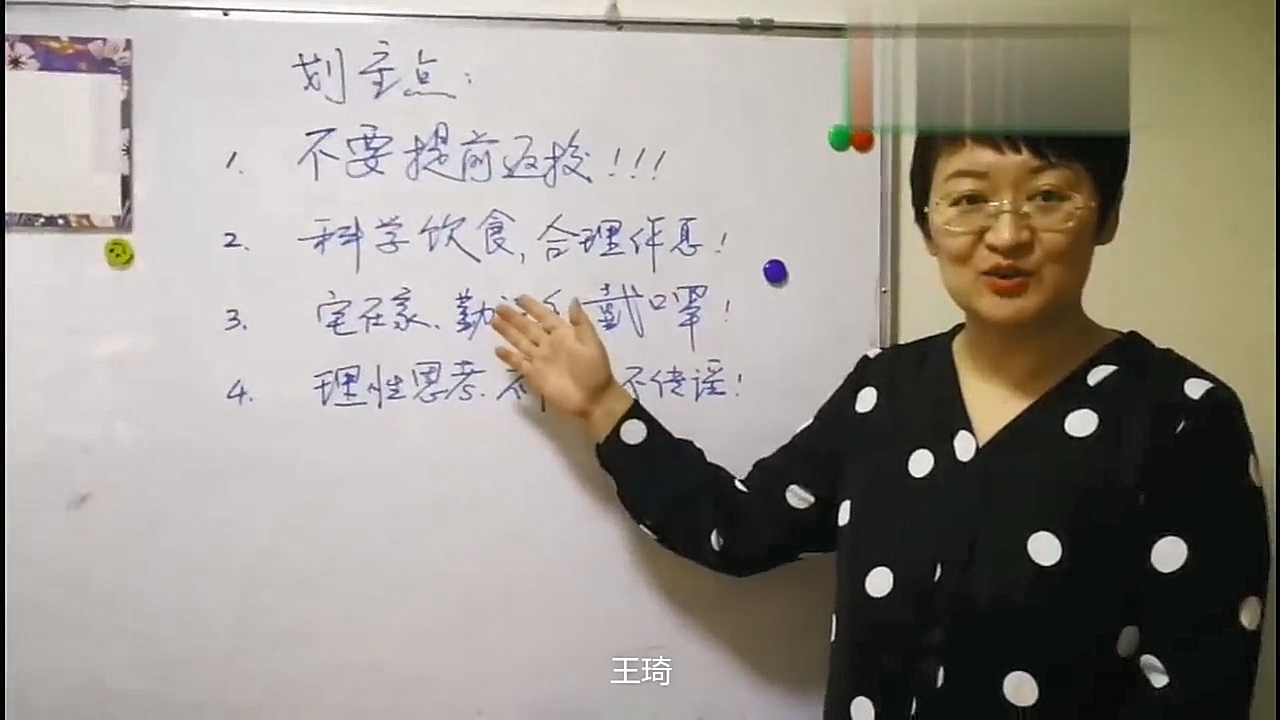 划重点:
1. 不要提前返校!!!
2. 科学饮食,合理作息!
3. 宅在家、勤 戴口罩!
4. 理性思考、不 不传谣!
王琦